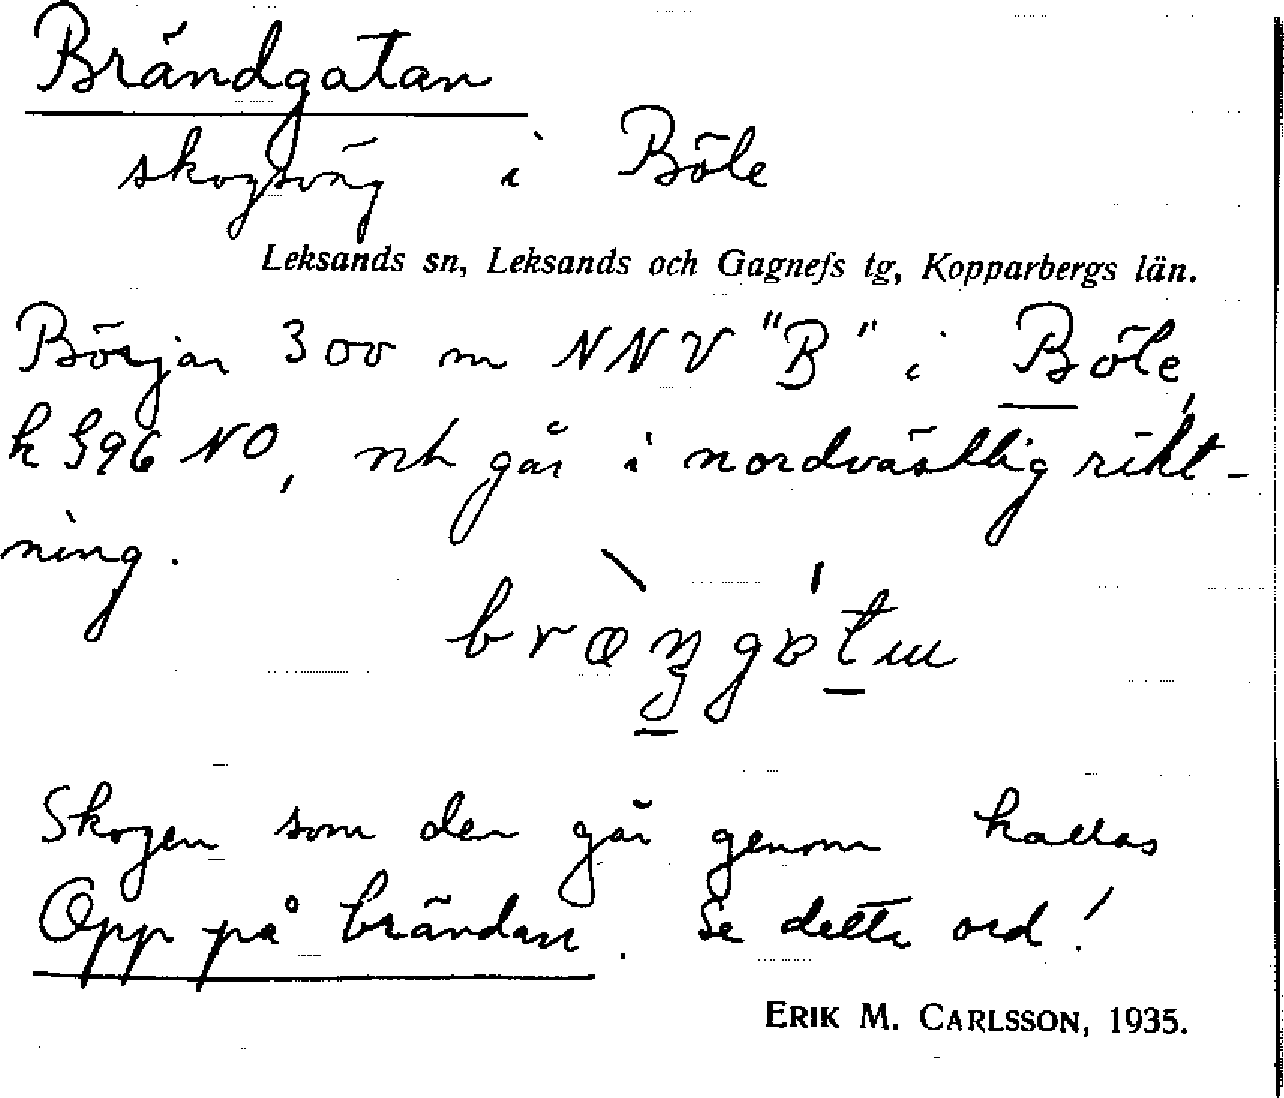 Brändgatan
skogsväg i Böle
Leksands sn, Leksands och Gagnefs tg, Kopparbergs län.
Börjar 300 m NNV "B" i Böle,
k 396 NO, och går i nordvästlig rikt-
ning.
Skogen som den går genom kallas
Opp på brändan. Se detta ord!
ERIK M. CARLSSON, 1935.